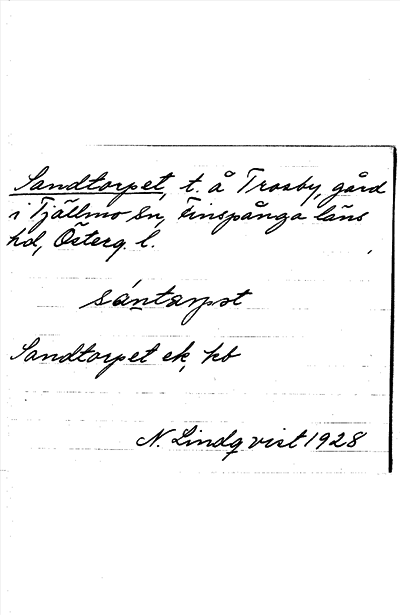 Sandtorpet, t. å Trosby, gård
i Tjällmo Sn, Finspånga läns
hd, Österg. l.
sántarpət
Sandtorpet ek, hb
N. Lindqvist 1928